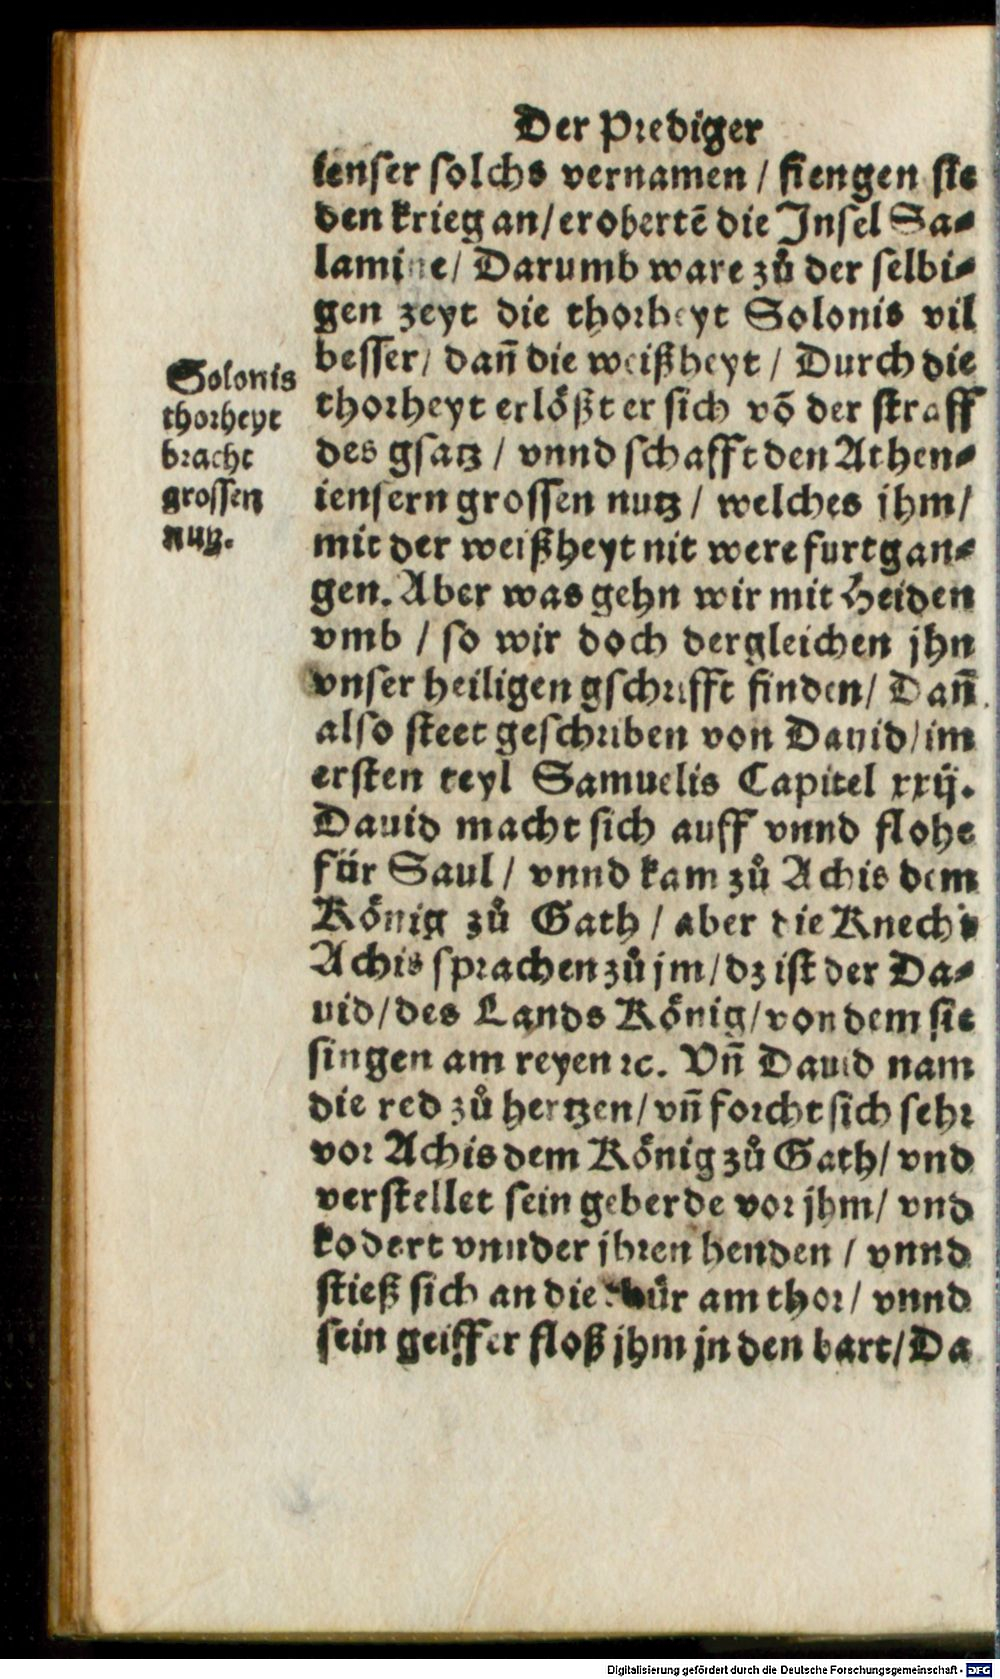 Der Prediger
ienser solchs vernamen / fiengen sie
den krieg an / erobertē die Insel Sa-
lamine / Darumb ware zů der selbi-
gen zeyt die thorheyt Solonis vil
besser / dañ die weißheyt / Durch die
thorheyt erlößt er sich vō der straff
des gsatz / vnnd schafft den Athen-
iensern grossen nutz / welches jhm /
mit der weißheyt nit were furtgan-
gen. Aber was gehn wir mit Heiden
vmb / so wir doch dergleichen jhn
vnser heiligen gschrifft finden / Dañ
also steet geschriben von Dauid / im
ersten teyl Samuelis Capitel xxij.
Dauid macht sich auff vnnd flohe
für Saul / vnnd kam zů Achis dem
König zů Gath / aber die Knecht
Achis sprachen zů jm / dz ist der Da-
uid / des Lands König / von dem sie
singen am reyen ꝛc. Vñ Dauid nam
die red zů hertzen / vñ forcht sich sehr
vor Achis dem König zů Gath / vnd
verstellet sein geberde vor jhm / vnd
kodert vnnder jhren henden / vnnd
stieß sich an die thür am thor / vnnd
sein geiffer floß jhm jn den bart / Da
Solonis
thorheyt
bracht
grossen
nutz.
Digitalisierung gefördert durch die Deutsche Forschungsgemeinschaft - DFG